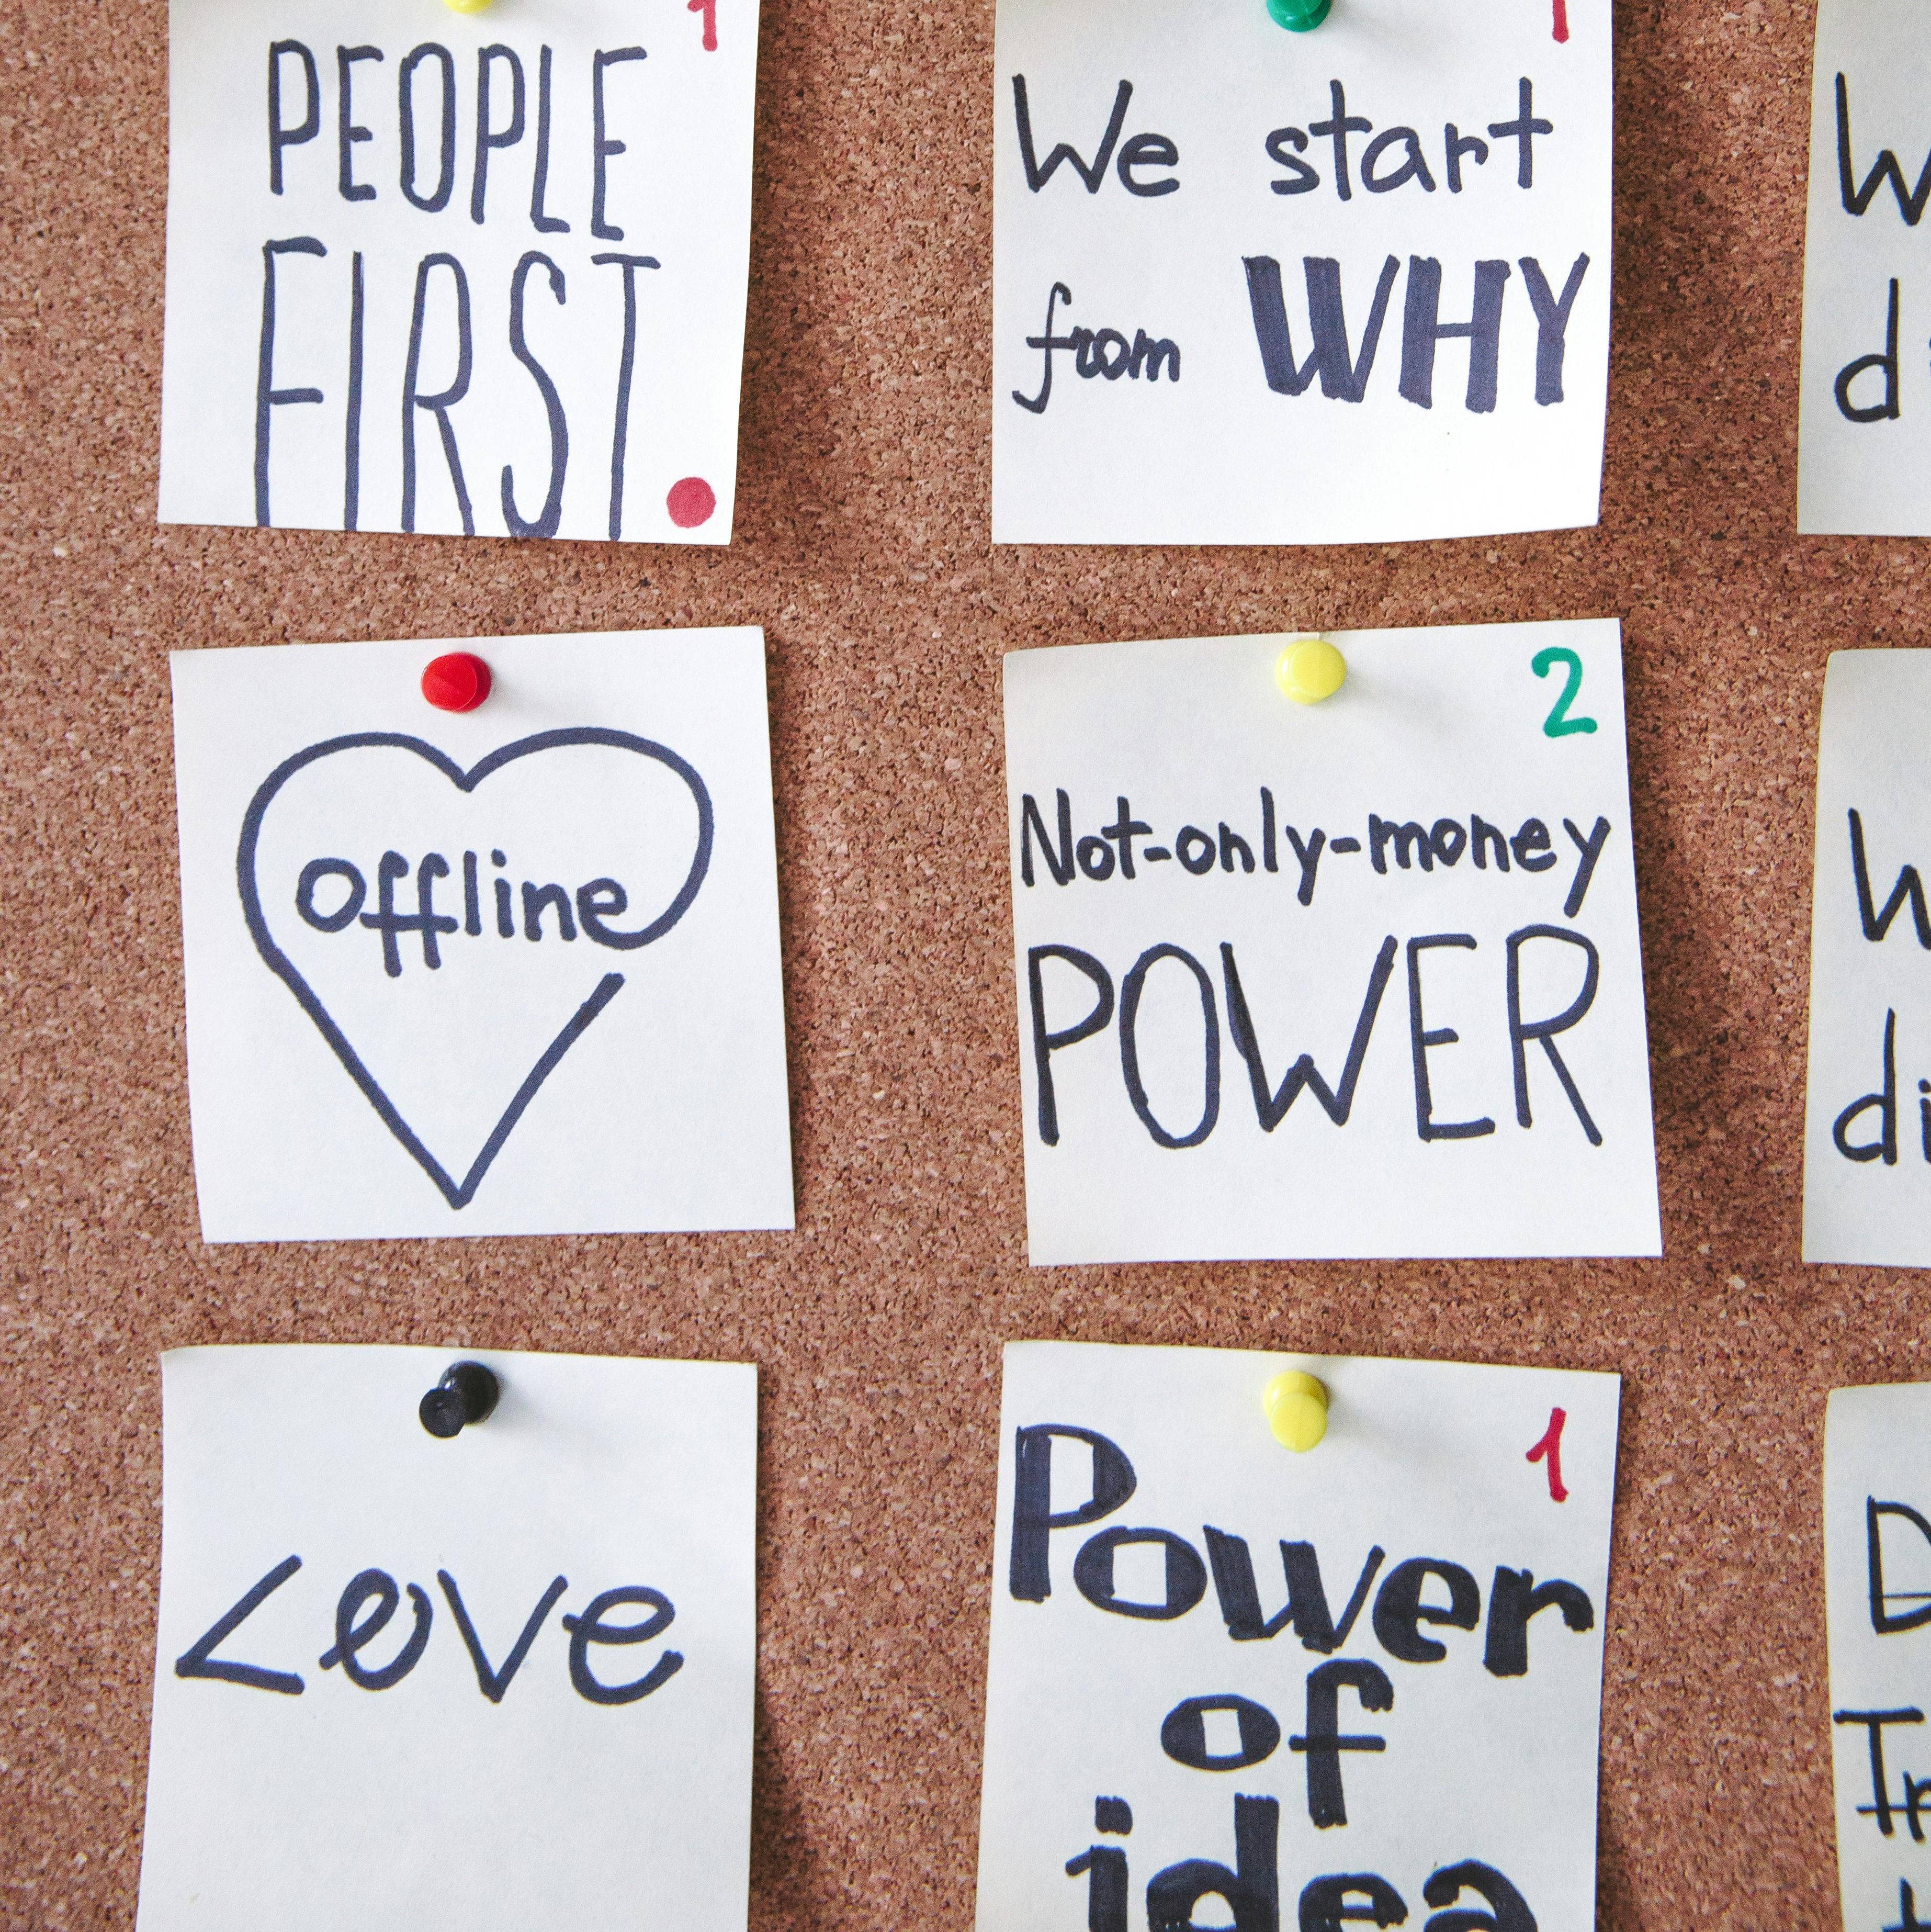 1
PEOPLE
FIRST
1
We start
from WHY
Offline
2
Not-only-money
POWER
Love
1
Power
of
idea